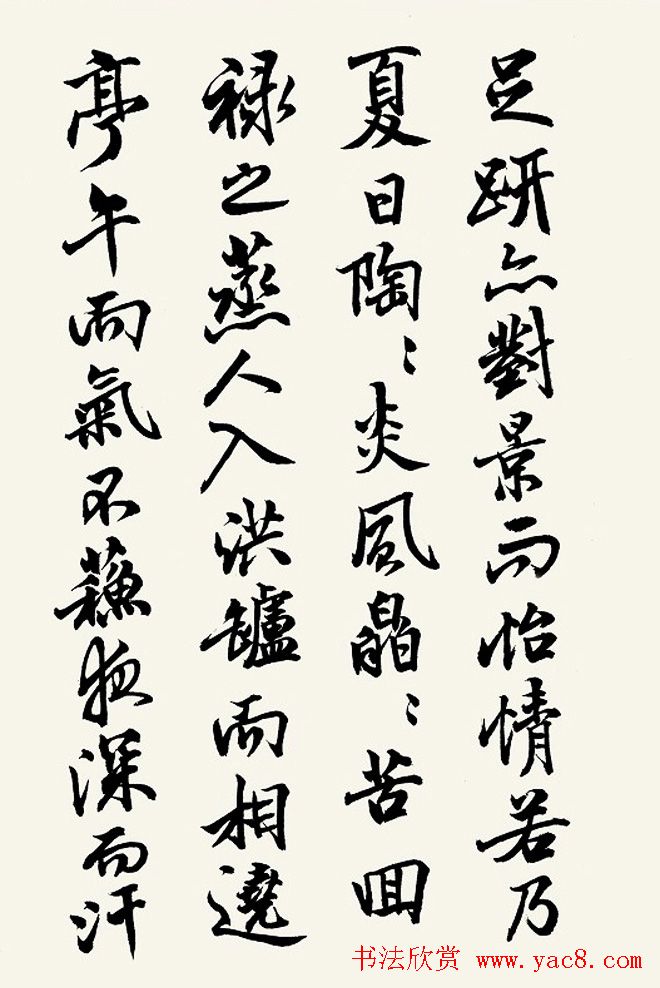 足妍亦對景而怡情若乃
夏日陶〻炎風皛〻苦回
祿之蒸人入洪罏而相遶
亭午而氣不蘓夜深而汗
书法欣赏 www.yac8.com